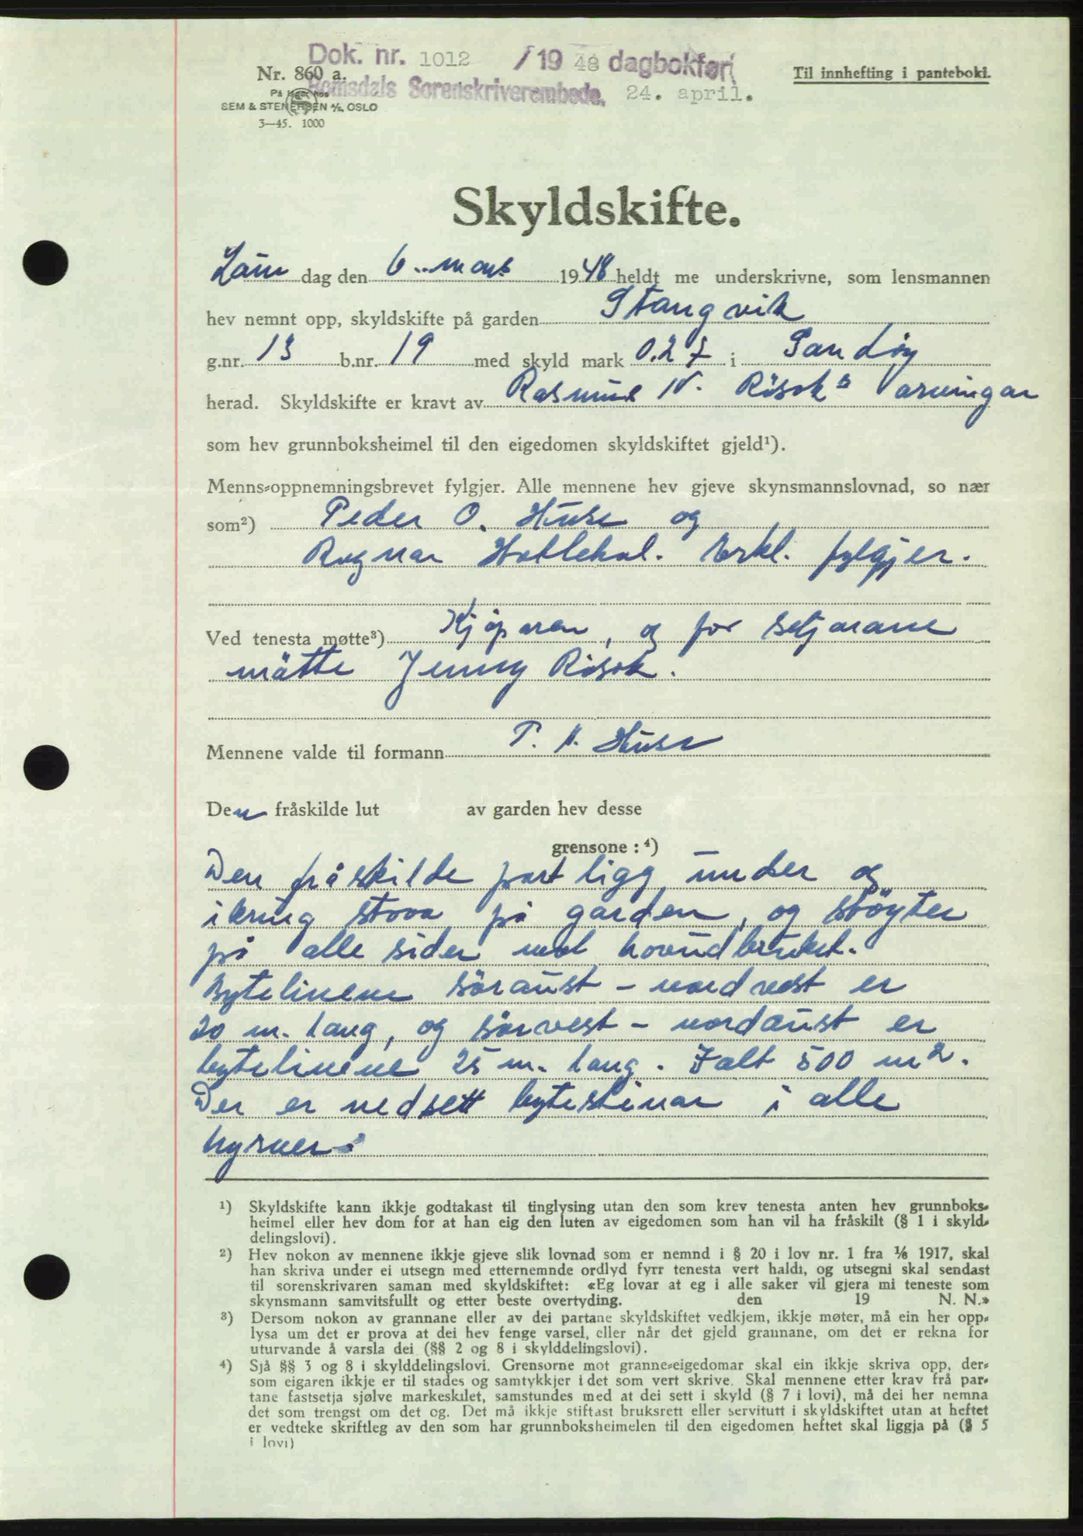 Dok. nr. 1012 /1948 dagbokført
Nr. 860 a.
Til innhefting i pantebok.
Romsdals Sorenskriverembede. 24. april.
SEM & STENERSEN A/S, OSLO
3—45. 1000
Skyldskifte.
Laur dag den 6. mars 1948 heldt me underskrivne, som lensmannen
hev nemnt opp, skyldskifte på garden Stangvik
g.nr. 13 b.nr. 19 med skyld mark 0.27 i Sandøy
herad. Skyldskifte er kravt av Rasmus N. Rösok's arvingar
som hev grunnboksheimel til den eigedomen skyldskiftet gjeld¹).
Menns-oppnemningsbrevet fylgjer. Alle mennene hev gjeve skynsmannslovnad, so nær
som²) Peder O. Huse og
Ragnar Hatlehol. Erkl. fylgjer.
Ved tenesta møtte³) Kjöparen, og for seljarane
måtte Jenny Rösok.
Mennene valde til formann P. N. Huse
Den fråskilde lut av garden hev desse
grensone: ⁴)
Den fråskilde part ligg under og
ikring stova på garden, og stöyter
på alle sider med hovudbruket.
Bytelinene söraust - nordvest er
20 m. lang, og sörvest - nordaust er
bytelinene 25 m. lang. Ialt 500 m².
Der er nedsett bytesteinar i alle
hyrner.
¹) Skyldskifte kann ikkje godtakast til tinglysing utan den som krev tenesta anten hev grunnboks-
heimel eller hev dom for at han eig den luten av eigedomen som han vil ha fråskilt (§ 1 i skyld-
delingslovi).
²) Hev nokon av mennene ikkje gjeve slik lovnad som er nemnd i § 20 i lov nr. 1 fra ⅛ 1917, skal
han skriva under ei utsegn med etternemnde ordlyd fyrr tenesta vert haldi, og utsegni skal sendast
til sorenskrivaren saman med skyldskiftet: «Eg lovar at eg i alle saker vil gjera mi teneste som
skynsmann samvitsfullt og etter beste overtyding. den 19 N. N.»
³) Dersom nokon av grannane eller av dei partane skyldskiftet vedkjem, ikkje møter, må ein her opp-
lysa um det er prova at dei hev fenge varsel, eller når det gjeld grannane, om det er rekna for
uturvande å varsla dei (§§ 2 og 8 i skylddelingslovi).
⁴) Sjå §§ 3 og 8 i skylddelingslovi. Grensorne mot granne-eigedomar skal ein ikkje skriva opp, der-
som eigaren ikkje er til stades og samtykkjer i det som vert skrive. Skal mennene etter krav frå par-
tane fastsetja sjølve markeskilet, samstundes med at dei sett i skyld (§ 7 i lovi), må dei her nemna
det som trengst om det og. Det må ikkje stiftast bruksrett eller servitutt i skyldskiftet utan at heftet
er vedteke skriftleg av den som har grunnboksheimelen til den eigedomen heftet skal liggja på (§ 5
i lovi)